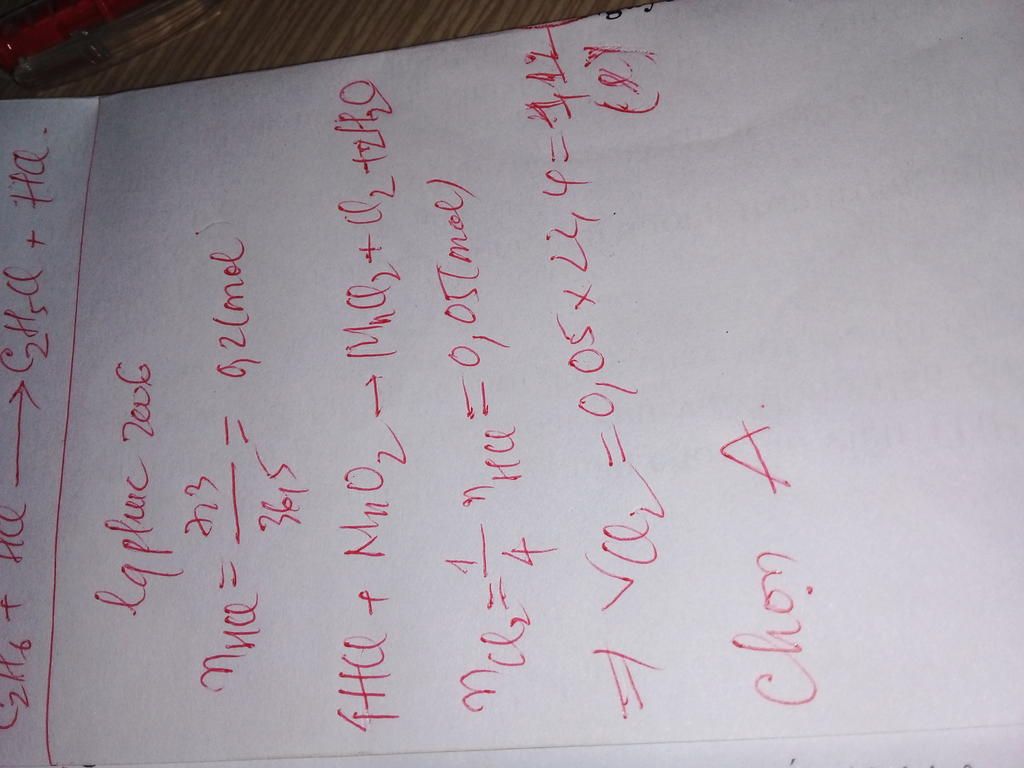 C₂H₆ + HCl ⟶ C₂H₅Cl + HCl.
lqphuc 2006
nHCl = 7,3/36,5 = 0,2(mol)
4HCl + MnO₂ → MnCl₂ + Cl₂ + 2H₂O
nCl₂ = 1/4 nHCl = 0,05(mol)
⇒ VCl₂ = 0,05 × 22,4 = 1,12 (l)
Chọn A.